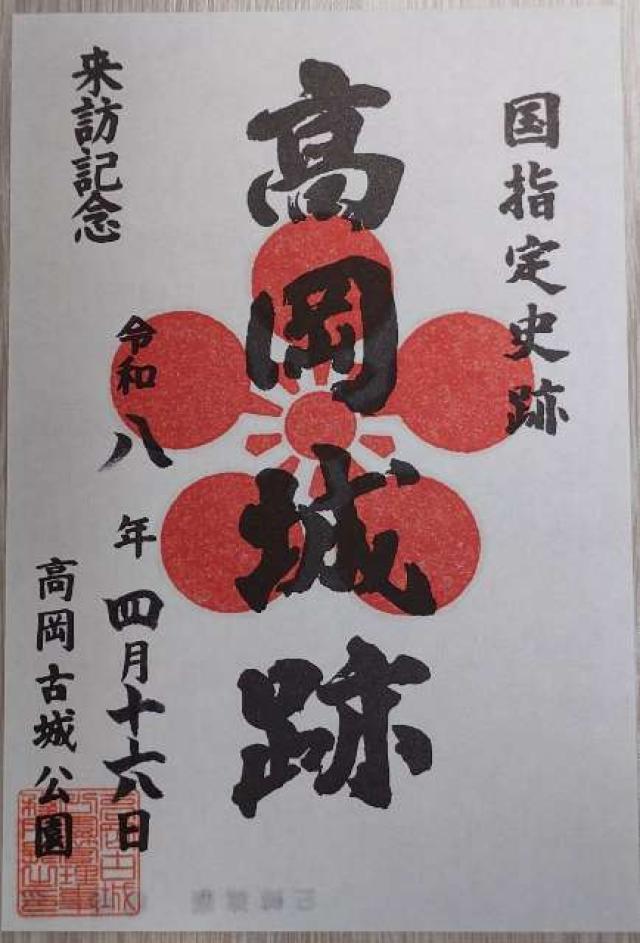 国指定史跡
高岡城跡
来訪記念
令和八年四月十六日
高岡古城公園